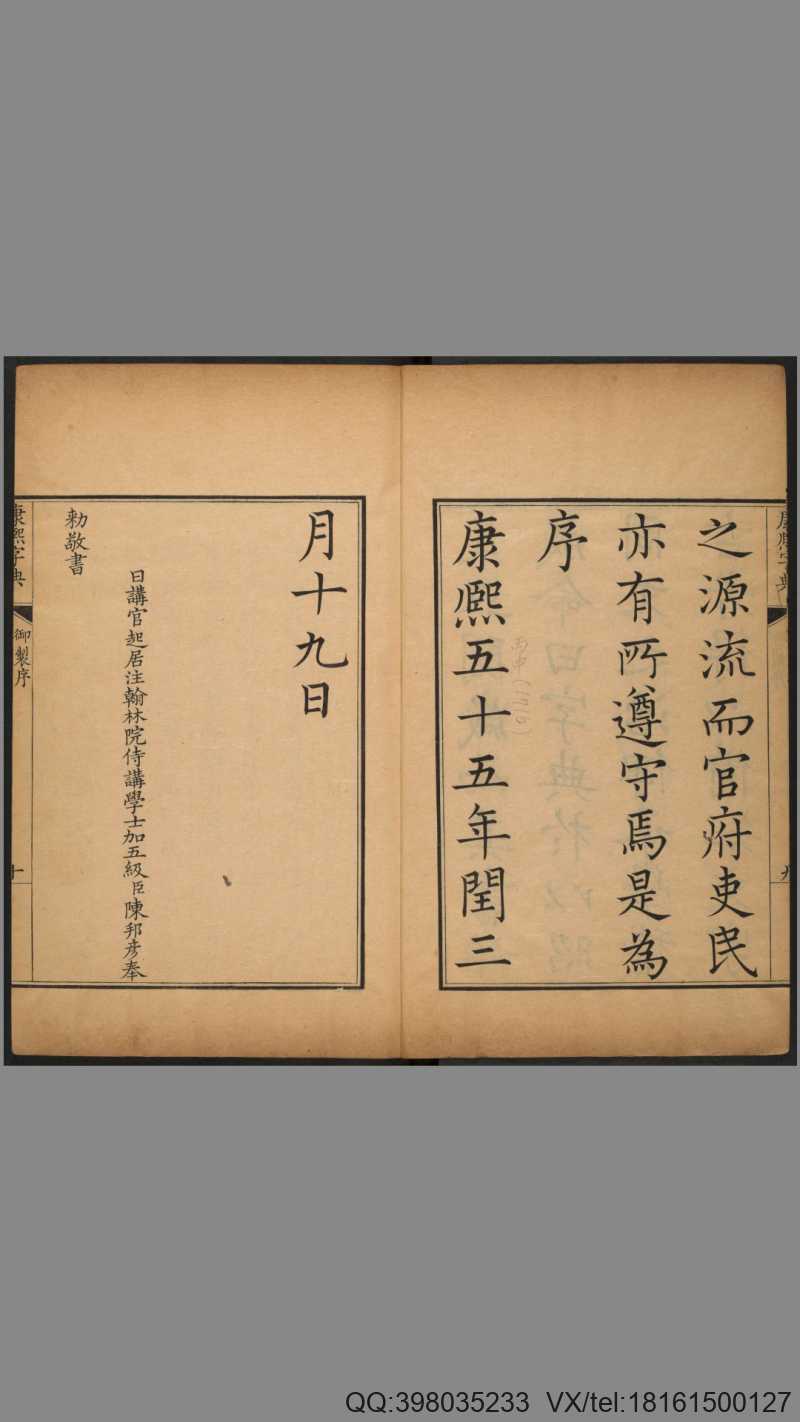 之源流而官府吏民
亦有所遵守焉是為
序
康熙五十五年閏三
月十九日
日講官起居注翰林院侍講學士加五級臣陳邦彥奉
勅敬書
康熙字典
御製序
十
康熙字典
九
QQ:398035233 VX/tel:18161500127